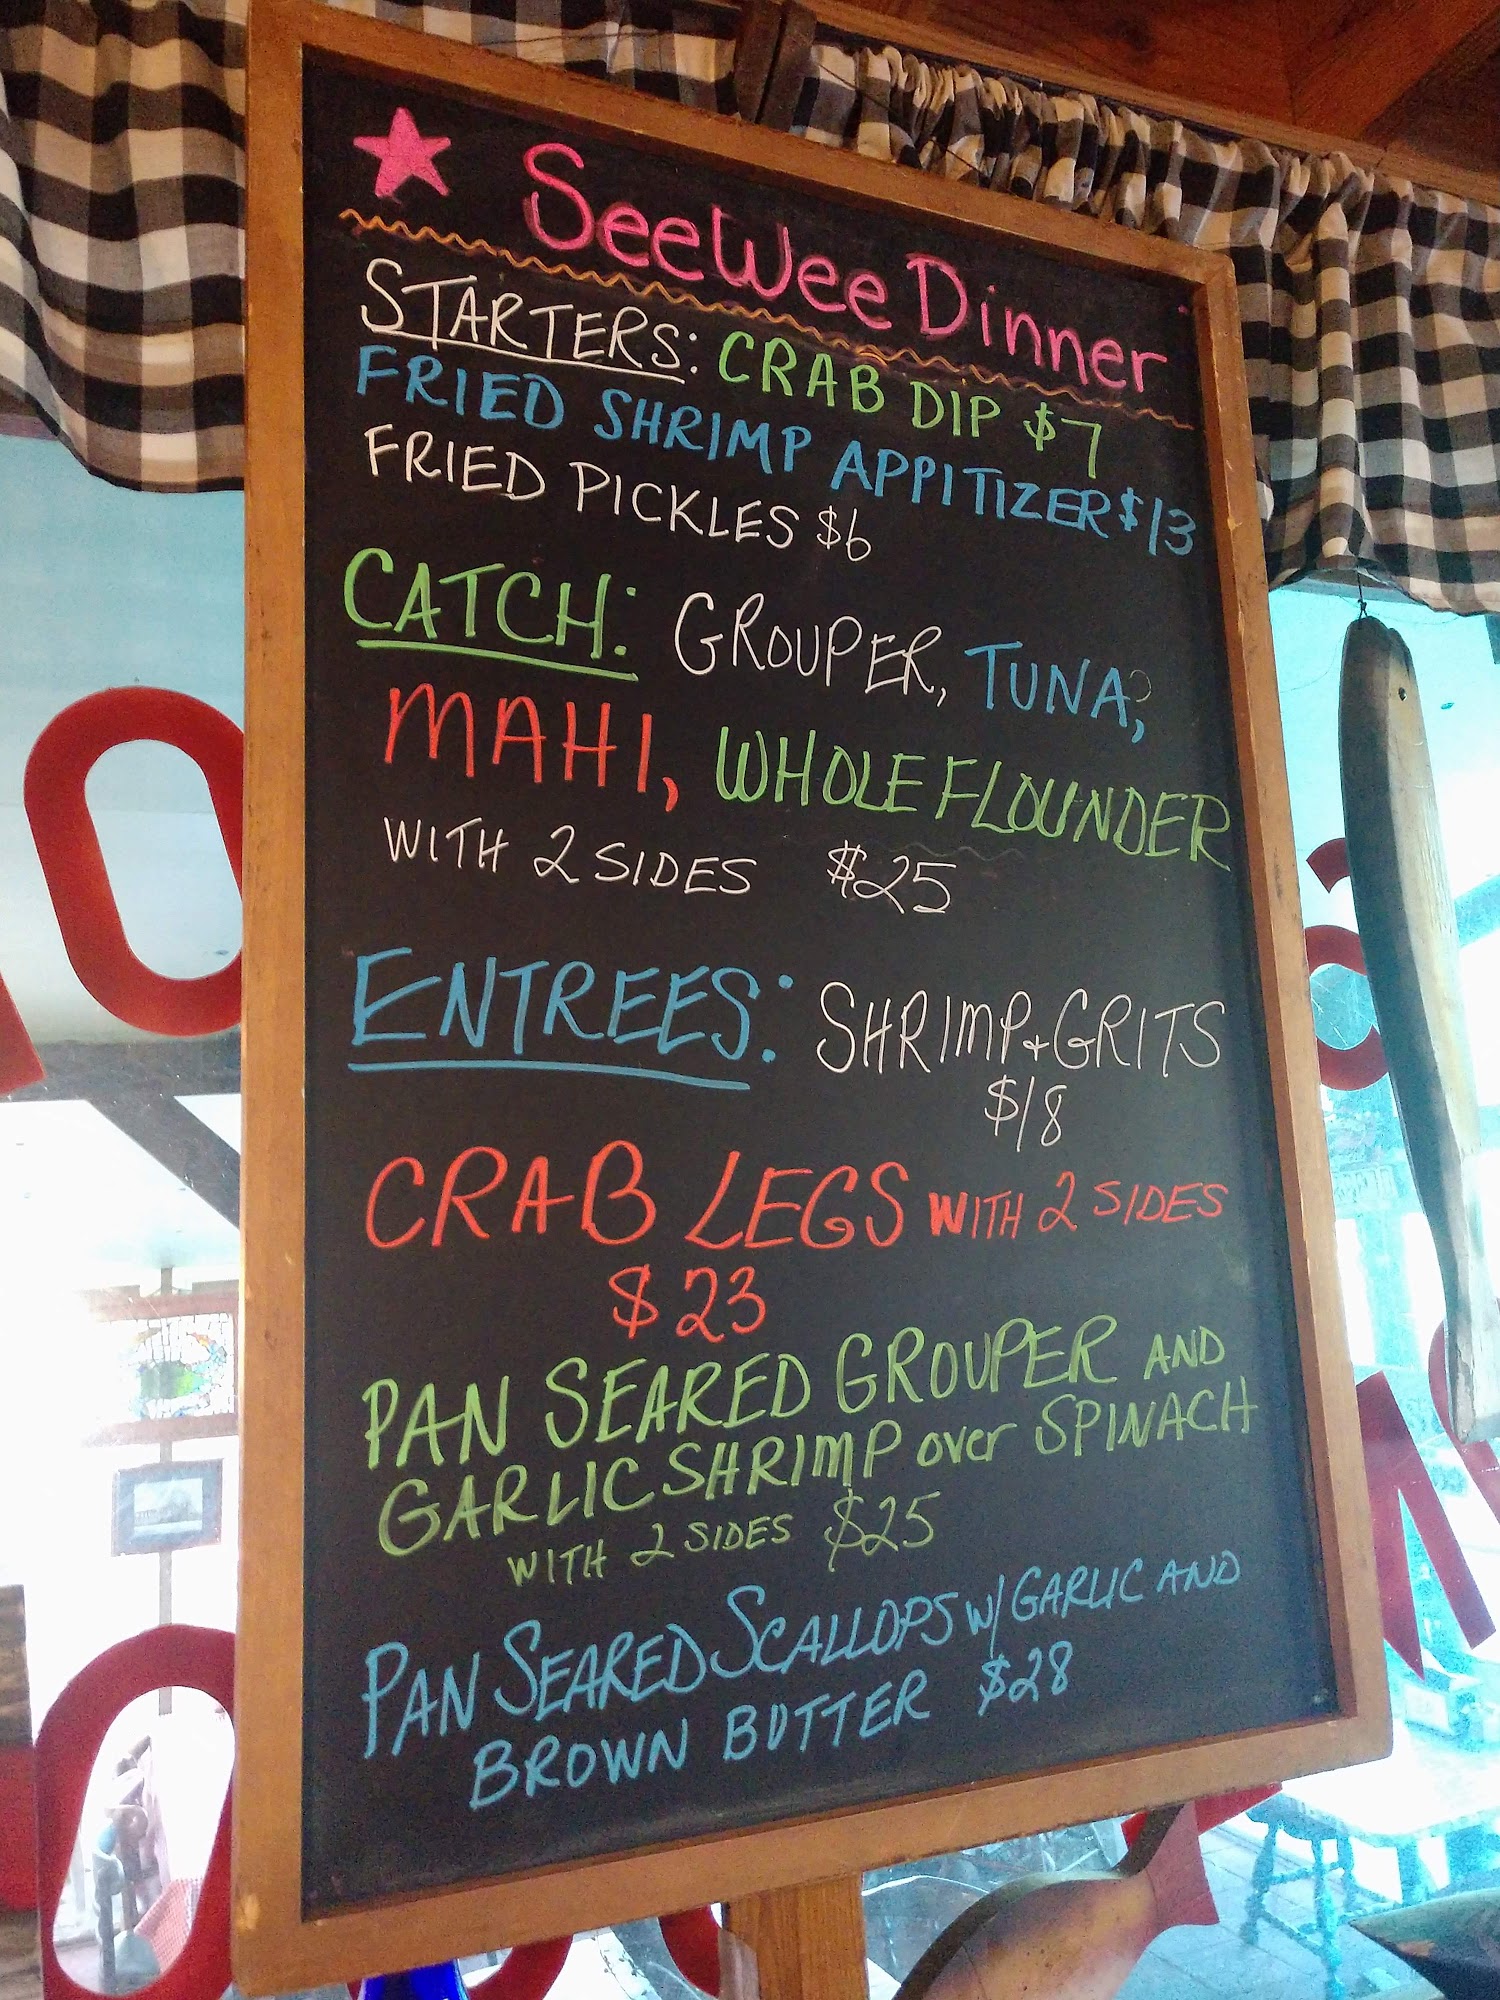 SeeWee Dinner
STARTERS: CRAB DIP $7
FRIED SHRIMP APPITIZER $13
FRIED PICKLES $6
CATCH: GROUPER, TUNA,
MAHI, WHOLE FLOUNDER
WITH 2 SIDES $25
ENTREES: SHRIMP + GRITS
$18
CRAB LEGS WITH 2 SIDES
$23
PAN SEARED GROUPER AND
GARLIC SHRIMP over SPINACH
WITH 2 SIDES $25
PAN SEARED SCALLOPS W/ GARLIC AND
BROWN BUTTER $28